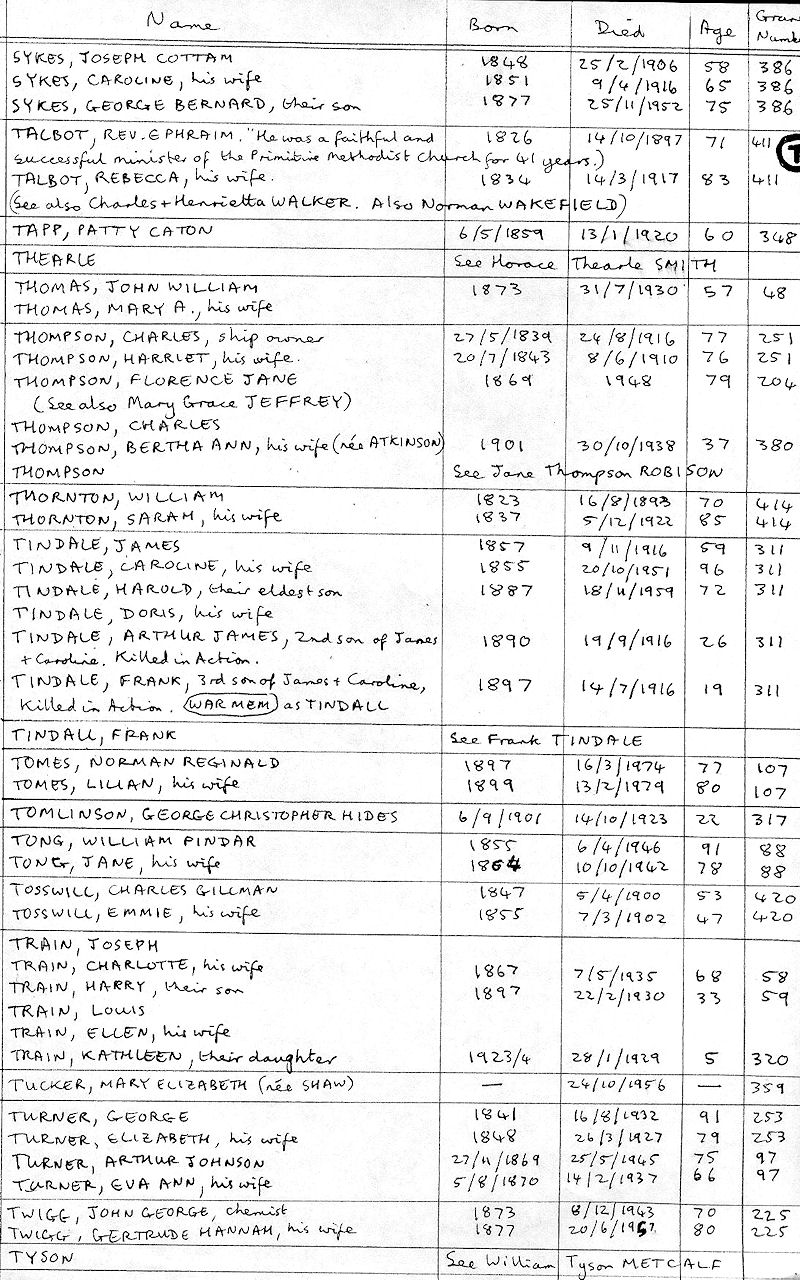 Name Born Died Age Grave Number
SYKES, JOSEPH COTTAM 1848 25/2/1906 58 386
SYKES, CAROLINE, his wife 1851 9/4/1916 65 386
SYKES, GEORGE BERNARD, their son 1877 25/11/1952 75 386
TALBOT, REV. EPHRAIM. "He was a faithful and 1826 14/10/1897 71 411
successful minister of the Primitive Methodist Church for 41 years.) T
TALBOT, REBECCA, his wife. 1834 14/3/1917 83 411
(See also Charles + Henrietta WALKER. Also Norman WAKEFIELD)
TAPP, PATTY CATON 6/5/1859 13/1/1920 60 348
THEARLE See Horace Thearle SMITH
THOMAS, JOHN WILLIAM 1873 31/7/1930 57 48
THOMAS, MARY A., his wife
THOMPSON, CHARLES, ship owner 27/5/1839 24/8/1916 77 251
THOMPSON, HARRIET, his wife. 20/7/1843 8/6/1910 76 251
THOMPSON, FLORENCE JANE 1869 1948 79 204
(See also Mary Grace JEFFREY)
THOMPSON, CHARLES
THOMPSON, BERTHA ANN, his wife (née ATKINSON) 1901 30/10/1938 37 380
THOMPSON See Jane Thompson ROBISON
THORNTON, WILLIAM 1823 16/8/1893 70 414
THORNTON, SARAH, his wife 1837 5/12/1922 85 414
TINDALE, JAMES 1857 9/11/1916 59 311
TINDALE, CAROLINE, his wife 1855 20/10/1951 96 311
TINDALE, HAROLD, their eldest son 1887 18/11/1959 72 311
TINDALE, DORIS, his wife
TINDALE, ARTHUR JAMES, 2nd son of James 1890 19/9/1916 26 311
+ Caroline. Killed in Action.
TINDALE, FRANK, 3rd son of James + Caroline, 1897 14/7/1916 19 311
Killed in Action. WAR MEM as TINDALL
TINDALL, FRANK See Frank TINDALE
TOMES, NORMAN REGINALD 1897 16/3/1974 77 107
TOMES, LILIAN, his wife 1899 13/2/1979 80 107
TOMLINSON, GEORGE CHRISTOPHER HIDES 6/9/1901 14/10/1923 22 317
TONG, WILLIAM PINDAR 1855 6/4/1946 91 88
TONG, JANE, his wife 1864 10/10/1942 78 88
TOSSWILL, CHARLES GILLMAN 1847 5/4/1900 53 420
TOSSWILL, EMMIE, his wife 1855 7/3/1902 47 420
TRAIN, JOSEPH
TRAIN, CHARLOTTE, his wife 1867 7/5/1935 68 58
TRAIN, HARRY, their son 1897 22/2/1930 33 59
TRAIN, LOUIS
TRAIN, ELLEN, his wife
TRAIN, KATHLEEN, their daughter 1923/4 28/1/1929 5 320
TUCKER, MARY ELIZABETH (née SHAW) — 24/10/1956 — 359
TURNER, GEORGE 1841 16/8/1932 91 253
TURNER, ELIZABETH, his wife 1848 26/3/1927 79 253
TURNER, ARTHUR JOHNSON 27/11/1869 25/5/1945 75 97
TURNER, EVA ANN, his wife 5/8/1870 14/2/1937 66 97
TWIGG, JOHN GEORGE, chemist 1873 8/12/1943 70 225
TWIGG, GERTRUDE HANNAH, his wife 1877 20/6/1957 80 225
TYSON See William Tyson METCALF